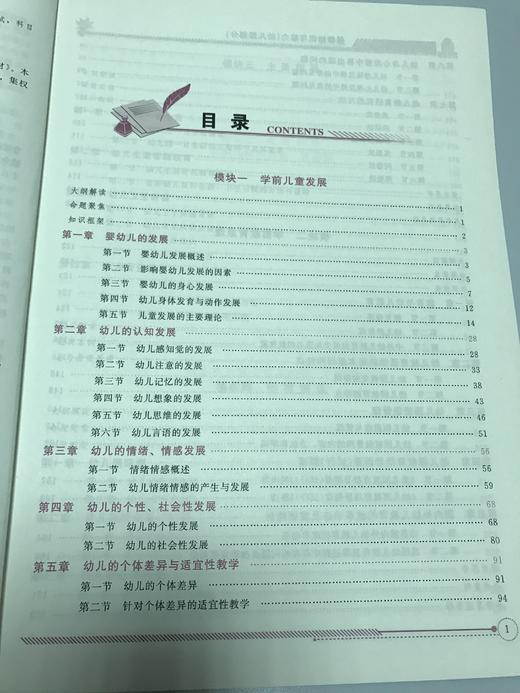 试, 科目
材), 本
集权
目录
CONTENTS
模块一 学前儿童发展
大纲解读 1
命题聚焦 1
知识框架 2
第一章 婴幼儿的发展 3
第一节 婴幼儿发展概述 3
第二节 影响婴幼儿发展的因素 5
第三节 婴幼儿的身心发展 7
第四节 幼儿身体发育与动作发展 12
第五节 儿童发展的主要理论 14
第二章 幼儿的认知发展 28
第一节 幼儿感知觉的发展 28
第二节 幼儿注意的发展 33
第三节 幼儿记忆的发展 38
第四节 幼儿想象的发展 43
第五节 幼儿思维的发展 46
第六节 幼儿言语的发展 51
第三章 幼儿的情绪、情感发展 56
第一节 情绪情感概述 56
第二节 幼儿情绪情感的产生与发展 59
第四章 幼儿的个性、社会性发展 68
第一节 幼儿的个性发展 68
第二节 幼儿的社会性发展 80
第五章 幼儿的个体差异与适宜性教学 91
第一节 幼儿的个体差异 91
第二节 针对个体差异的适宜性教学 94
1